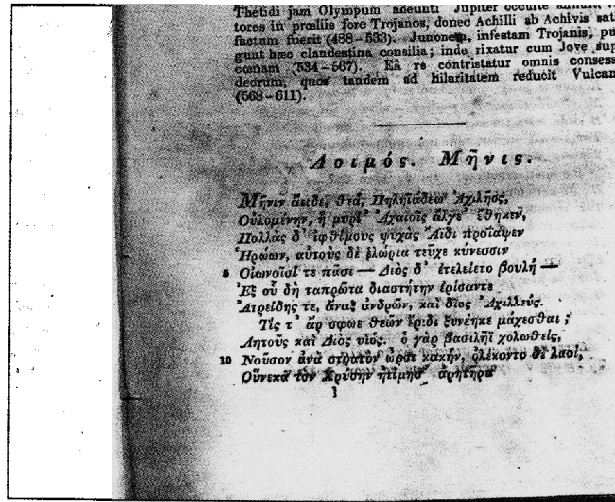 Thetidi jam Olympum adeunti Jupiter occulte
tores in prœliis fore Trojanos, donec Achilli ab Achivis sat
factum fuerit (488-533). Junonem, infestam Trojanis, pu
gunt hæc clandestina consilia; inde rixatur cum Jove sup
cœnam (534-567). Eâ re contristatur omnis consess
deorum, quos tandem ad hilaritatem reducit Vulcan
(568-611).
Λοιμός. Μῆνις.
Μῆνιν ἄειδε, θεά, Πηληϊάδεω Ἀχιλῆος,
Οὐλομένην, ἣ μυρί᾽ Ἀχαιοῖς ἄλγε᾽ ἔθηκεν,
Πολλὰς δ᾽ ἰφθίμους ψυχὰς Ἄϊδι προΐαψεν
Ἡρώων, αὐτοὺς δὲ ἑλώρια τεῦχε κύνεσσιν
5 Οἰωνοῖσί τε πᾶσι — Διὸς δ᾽ ἐτελείετο βουλή —
Ἐξ οὗ δὴ ταπρῶτα διαστήτην ἐρίσαντε
Ἀτρείδης τε, ἄναξ ἀνδρῶν, καὶ δῖος Ἀχιλλεύς.
Τίς τ᾽ ἄρ σφωε θεῶν ἔριδι ξυνέηκε μάχεσθαι;
Λητοῦς καὶ Διὸς υἱός. ὁ γὰρ βασιλῆϊ χολωθείς,
10 Νοῦσον ἀνὰ στρατὸν ὦρσε κακήν, ὀλέκοντο δὲ λαοί,
Οὕνεκα τὸν Χρύσην ἠτίμησ᾽ ἀρητῆρα
1